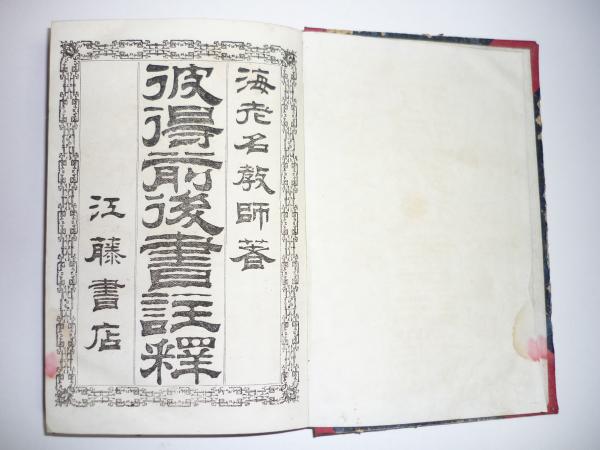 海老名教師著
彼得前後書註釋
江藤書店